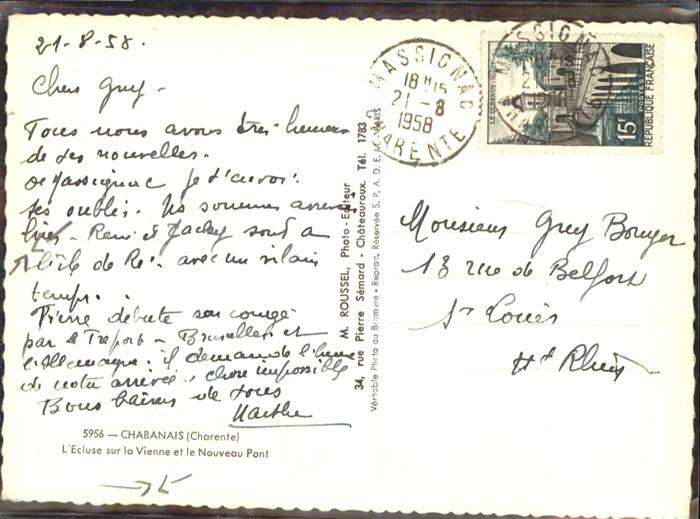 21-8-58.
Cher Guy -
Tous nous avons très heureux
de tes nouvelles.
de Massignac je t'envoi
tes oublis. Ns sommes arrivés
hier - René et Jacky sont a
l'île de Ré. avec un vilain
temps.
Pierre débute son congé
par le Treport - Bruxelles et
l'Allemagne. il demande l'heure
de notre arrivée, chose impossible
Bons baisers de tous
Marthe
5956 — CHABANAIS (Charente)
L'Ecluse sur la Vienne et le Nouveau Pont
M. ROUSSEL, Photo-Editeur
34, rue Pierre Sémard - Châteauroux. Tél. 1783
Véritable Photo au Bromure - Reprod. Réservée S.P.A.D.E.M. PARIS
MASSIGNAC
18H15
21-8
1958
CHARENTE
MASSIGNAC
15F
POSTES
REPUBLIQUE FRANÇAISE
LE QUESNOY
Monsieur Guy Bouyer
13 rue de Belfort
St Louis
Ht Rhin